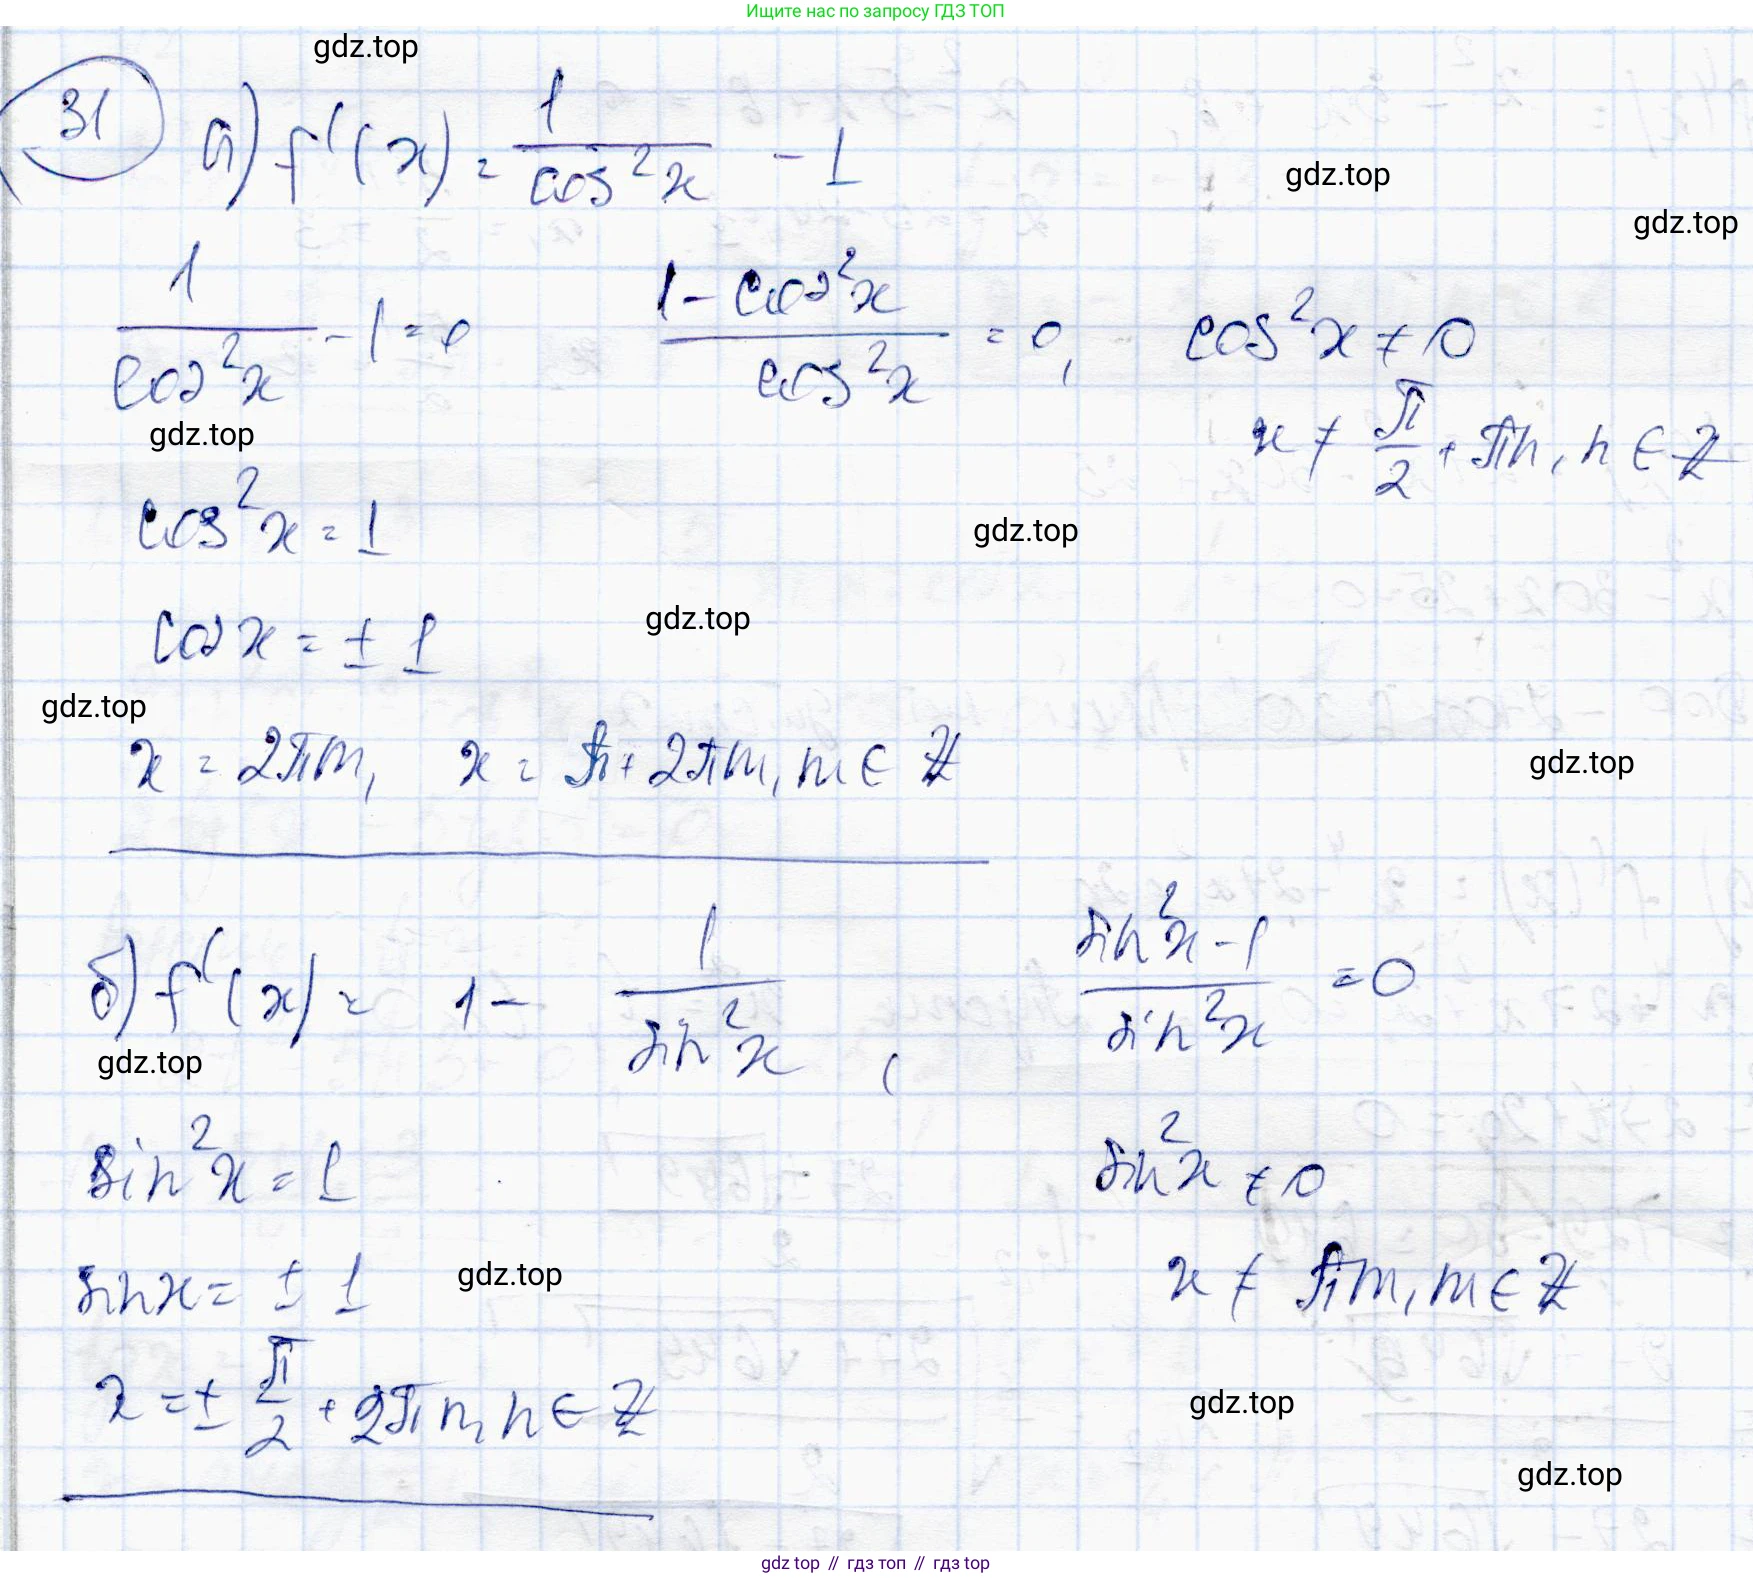 Ищите нас по запросу ГДЗ ТОП
gdz.top
31 а) f'(x) = 1/cos²x - 1
gdz.top
gdz.top
1/cos²x - 1 = 0 (1 - cos²x)/cos²x = 0, cos²x ≠ 0
gdz.top
x ≠ π/2 + πn, n ∈ Z
cos²x = 1
gdz.top
cos x = ± 1
gdz.top
gdz.top
x = 2πm, x = π + 2πm, m ∈ Z
gdz.top
б) f'(x) = 1 - 1/sin²x, (sin²x - 1)/sin²x = 0
gdz.top
sin²x = 1 sin²x ≠ 0
sin x = ± 1 x ≠ πm, m ∈ Z
gdz.top
x = ± π/2 + 2πn, n ∈ Z
gdz.top
gdz.top
gdz top // гдз топ // гдз top